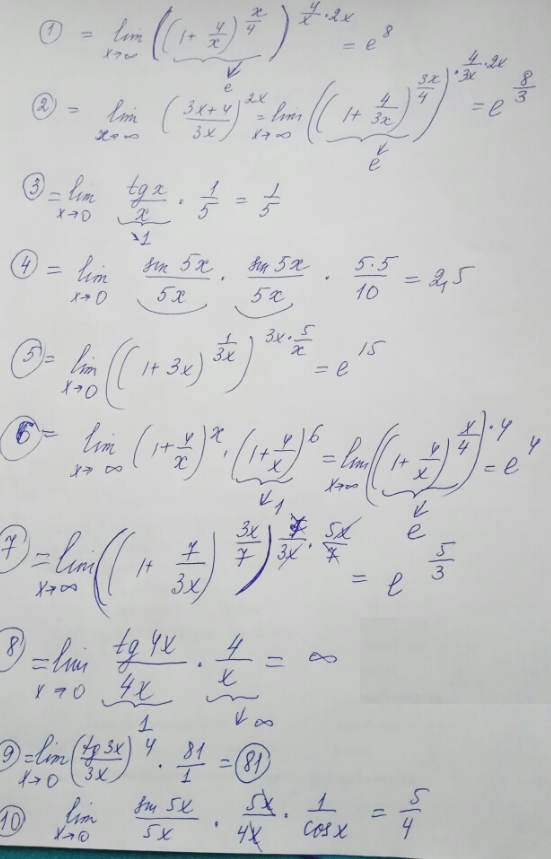 ① = lim x→∞ ((1+4/x)^(x/4))^(4/x·2x) = e^8
e
② = lim x→∞ ((3x+4)/3x)^(2x) = lim x→∞ ((1+4/3x)^(3x/4))^(·4/3x·2x) = e^(8/3)
e
③ = lim x→0 tg x/x · 1/5 = 1/5
→1
④ = lim x→0 sin 5x/5x · sin 5x/5x · 5·5/10 = 2,5
⑤ = lim x→0 ((1+3x)^(1/3x))^(3x·5/x) = e^15
⑥ = lim x→∞ (1+4/x)^x · (1+4/x)^6 = lim x→∞ ((1+4/x)^(x/4))^(·4) = e^4
1 e
⑦ = lim x→∞ ((1+7/3x)^(3x/7))^(7/3x·5x/7) = e^(5/3)
⑧ = lim x→0 tg 4x/4x · 4/x = ∞
1 ∞
⑨ = lim x→0 (tg 3x/3x)^4 · 81/1 = 81
⑩ lim x→0 sin 5x/5x · 5x/4x · 1/cos x = 5/4